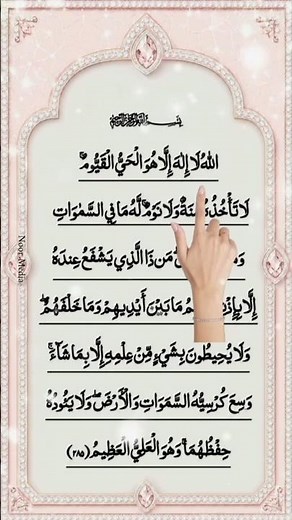 بِسْمِ اللهِ الرَّحْمٰنِ الرَّحِيْمِ
اللهُ لَا إِلٰهَ إِلَّا هُوَ الْحَيُّ الْقَيُّومُ ۚ
لَا تَأْخُذُهُ سِنَةٌ وَلَا نَوْمٌ ۚ لَهُ مَا فِي السَّمٰوَاتِ
مَنْ ذَا الَّذِي يَشْفَعُ عِنْدَهُ
إِلَّا بِإِذْنِهِ مَا بَيْنَ أَيْدِيهِمْ وَمَا خَلْفَهُمْ ۖ
وَلَا يُحِيطُونَ بِشَيْءٍ مِّنْ عِلْمِهِ إِلَّا بِمَا شَاءَ ۚ
وَسِعَ كُرْسِيُّهُ السَّمَوَاتِ وَالْأَرْضَ ۖ وَلَا يَئُودُهُ
حِفْظُهُمَا ۚ وَهُوَ الْعَلِيُّ الْعَظِيمُ (٢٨٥)
Noor Media